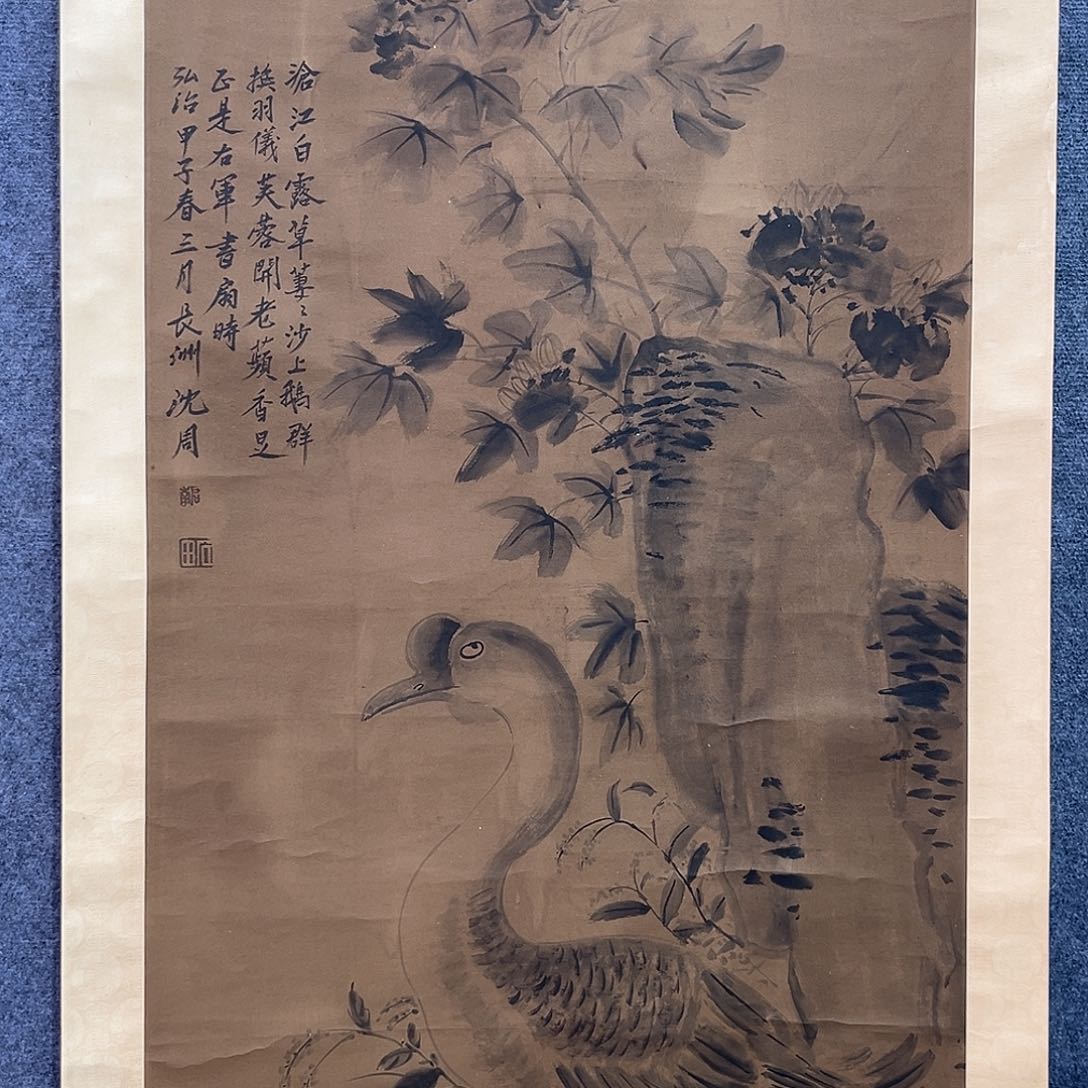 滄江白露草萋〻沙上鵝群
振羽儀芙蓉開老蘋香足
正是右軍書扇時
弘治甲子春三月長洲沈周
石田